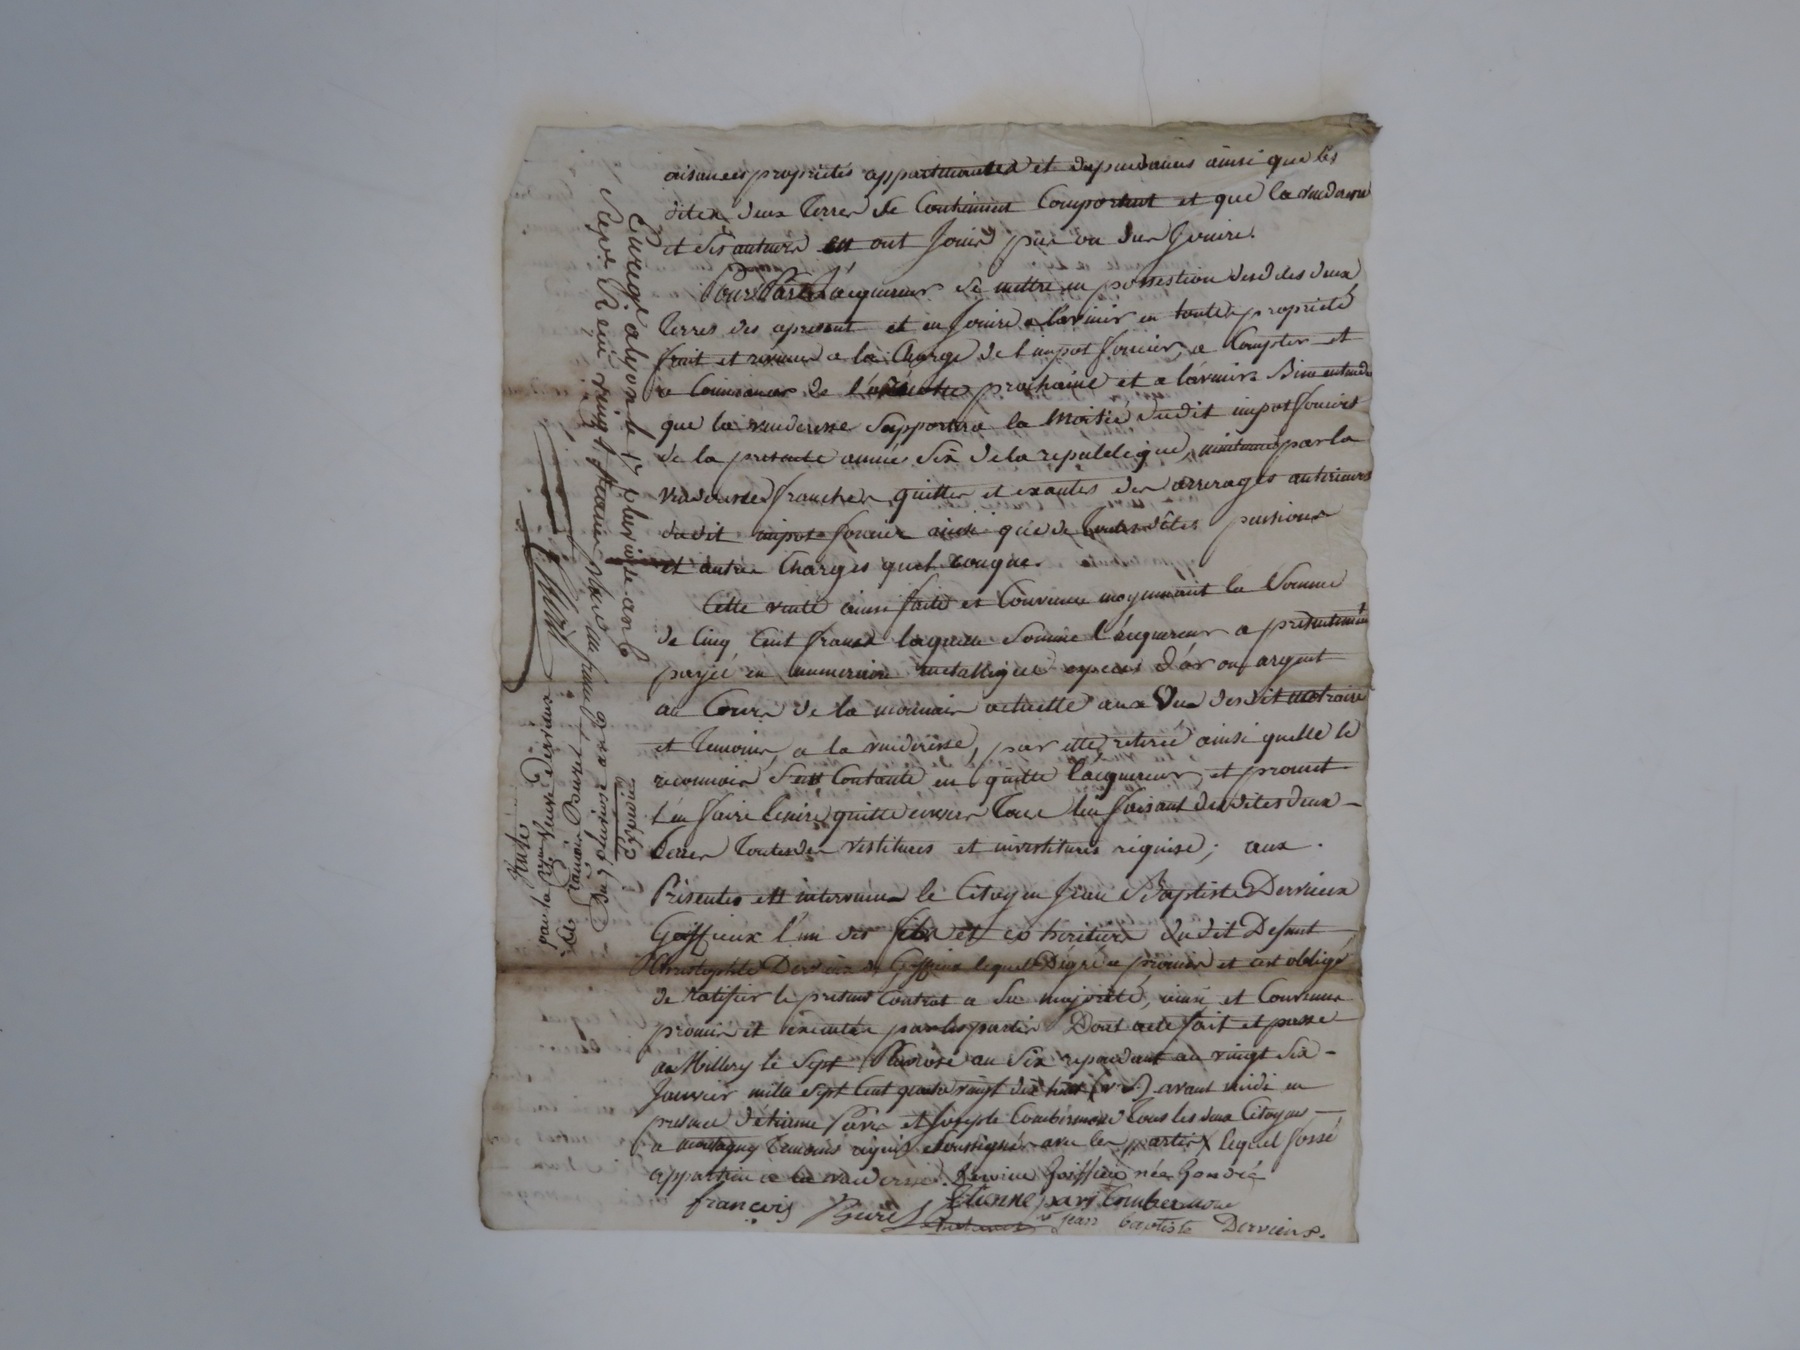 aisances propriétés appartenantes et dependances ainsi que les
dites deux Terres se Contiennent Comportent et que la venderesse
et ses auteurs en ont Jouis pue ou due Jouire.
Pour Par l'acquereur se mettre en possestion desd des deux
Terres des apresent et en Jouire a lavenir en toutte propriété
fruit et revenus a la Charge de l'impot foncier, a Compter et
a Commancer de l'année prochaine et a lavenir Bien entendu
que la venderesse Supportera la Moitié dudit impot foncier
de la presente année Six de la republique, maintenues par la
venderesse franches quittes et exantes des arrerages anterieurs
dudit impot foncier ainsi que de Toutes dêtes pensions
et autres Charges quel conque.
Cette vente ainsi faite et Convenue moyennant la Somme
de Cinq Cent francs laquelle Somme l'acquereur a presentement
payée en numeraire metallique especes d'or ou argent
au Cours de la monnaie actuelle aux Vue desdit notaire
et Temoins, a la venderesse, par elle retirée ainsi quelle le
reconnois S'en Contante en quitte l'acquereur et promet
l'en faire tenire quitte envers Tous lui faisant desdites deux
Terres Touttes des vestitures et investitures requise; aux
Présentes est intervenu le Citoyen Jean Baptiste Dervieux
Goiffieux l'un des fils et co heritiers dudit Defunt
Christophle Dervieux Goiffieux lequel Degré a promis et cest obligé
de ratifier le present Contrat a Sa majorité, ainsi et Convenu
promis et executer par les parties Dont acte fait et passé
au Millery le Sept Pluviose an Six repondant au vingt Six
Janvier mille Sept Cent quatre vingt dix huit (v. S.) avant midi en
presence d'Etienne Paris et Joseph Combermone Tous les deux Citoyens
a montagny Temoins requis et soussignés avec les parties X lequel fossé
appartien a la venderesse. Dervieu Goiffieux née Gondré
françois Bouret Etienne paris Combermone
jean baptiste Dervieux.
Enregé a lyon le 17 pluviose an 6
Reçu vingt francs
Du 7 pluviose an 6
Expedié
Vente
par la Vve Dervieux